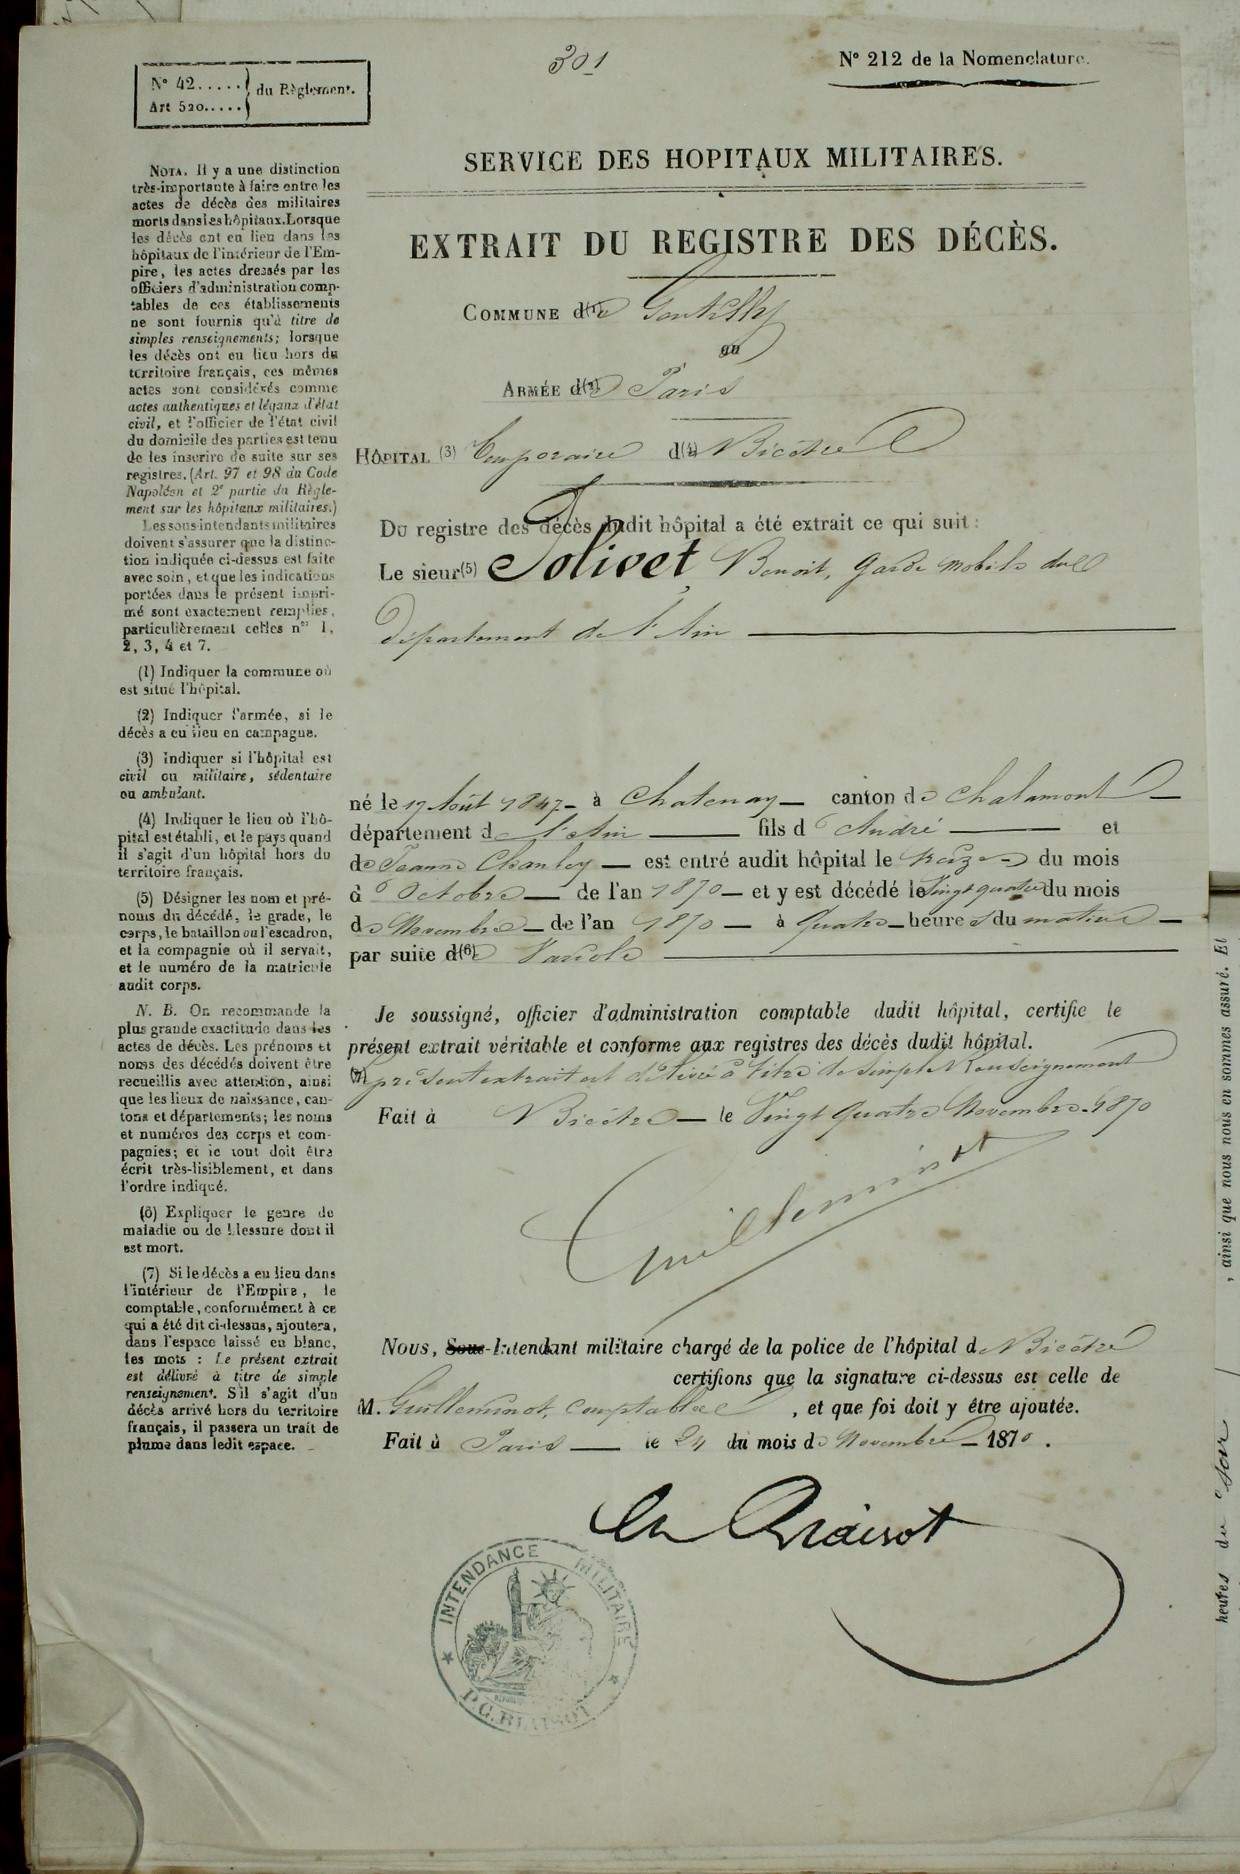 301
N° 212 de la Nomenclature.
N° 42.....
Art 520.....
du Règlement.
SERVICE DES HOPITAUX MILITAIRES.
EXTRAIT DU REGISTRE DES DÉCÈS.
COMMUNE d(1)e Gentilly
ou
ARMÉE d(2)e Paris
HÔPITAL (3) Temporaire d(4)e Bicêtre
Du registre des décès dudit hôpital a été extrait ce qui suit :
Le sieur(5) Jolivet Benoit, Garde mobile du
département de l'Ain
né le 17 Août 1847 à Chatenay canton de Chalamont
département de l'Ain fils d'André et
de Jeanne est entré audit hôpital le treize du mois
d'Octobre de l'an 1870 et y est décédé le Vingt quatre du mois
de Novembre de l'an 1870 à Quatre heures du matin
par suite d(6)e Variole
Je soussigné, officier d'administration comptable dudit hôpital, certifie le
présent extrait véritable et conforme aux registres des décès dudit hôpital.
(7) présent extrait est délivré à titre de simple Renseignement
Fait à Bicêtre le Vingt Quatre Novembre 1870
Guilleminot
Nous, Sous-Intendant militaire chargé de la police de l'hôpital de Bicêtre
certifions que la signature ci-dessus est celle de
M. Guilleminot, Comptable , et que foi doit y être ajoutée.
Fait à Paris le 24 du mois de Novembre 1870.
INTENDANCE MILITAIRE
NOTA. Il y a une distinction
très-importante à faire entre les
actes de décès des militaires
morts dans les hôpitaux. Lorsque
les décès ont eu lieu dans les
hôpitaux de l'intérieur de l'Em-
pire, les actes dressés par les
officiers d'administration comp-
tables de ces établissements
ne sont fournis qu'à titre de
simples renseignements; lorsque
les décès ont eu lieu hors du
territoire français, ces mêmes
actes sont considérés comme
actes authentiques et légaux d'état
civil, et l'officier de l'état civil
du domicile des parties est tenu
de les inscrire de suite sur ses
registres. (Art. 97 et 98 du Code
Napoléon et 2e partie du Règle-
ment sur les hôpitaux militaires.)
Les sous-intendants militaires
doivent s'assurer que la distinc-
tion indiquée ci-dessus est faite
avec soin, et que les indications
portées dans le présent impri-
mé sont exactement remplies,
particulièrement celles nos 1,
2, 3, 4 et 7.
(1) Indiquer la commune où
est situé l'hôpital.
(2) Indiquer l'armée, si le
décès a eu lieu en campagne.
(3) Indiquer si l'hôpital est
civil ou militaire, sédentaire
ou ambulant.
(4) Indiquer le lieu où l'hô-
pital est établi, et le pays quand
il s'agit d'un hôpital hors du
territoire français.
(5) Désigner les nom et pré-
noms du décédé, le grade, le
corps, le bataillon ou l'escadron,
et la compagnie où il servait,
et le numéro de la matricule
audit corps.
N. B. On recommande la
plus grande exactitude dans les
actes de décès. Les prénoms et
noms des décédés doivent être
recueillis avec attention, ainsi
que les lieux de naissance, can-
tons et départements; les noms
et numéros des corps et com-
pagnies; et le tout doit être
écrit très-lisiblement, et dans
l'ordre indiqué.
(6) Expliquer le genre de
maladie ou de blessure dont il
est mort.
(7) Si le décès a eu lieu dans
l'intérieur de l'Empire, le
comptable, conformément à ce
qui a été dit ci-dessus, ajoutera,
dans l'espace laissé en blanc,
les mots : Le présent extrait
est délivré à titre de simple
renseignement. S'il s'agit d'un
décès arrivé hors du territoire
français, il passera un trait de
plume dans ledit espace.
, ainsi que nous nous en sommes assuré. Et
heures du soir